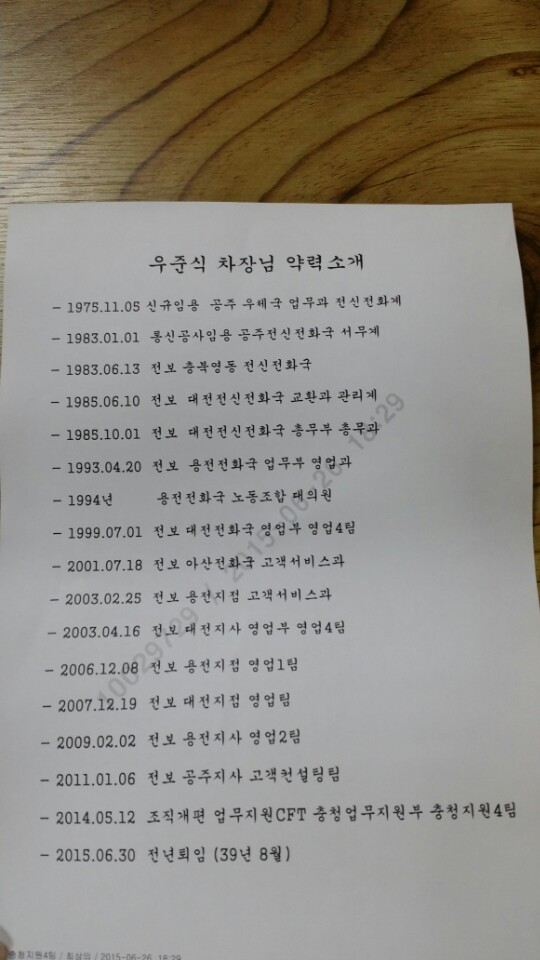 우준식 차장님 약력소개
- 1975.11.05 신규임용 공주 우체국 업무과 전신전화계
- 1983.01.01 통신공사임용 공주전신전화국 서무계
- 1983.06.13 전보 충북영동 전신전화국
- 1985.06.10 전보 대전전신전화국 교환과 관리계
- 1985.10.01 전보 대전전신전화국 총무부 총무과
- 1993.04.20 전보 용전전화국 업무부 영업과
- 1994년 용전전화국 노동조합 대의원
- 1999.07.01 전보 대전전화국 영업부 영업4팀
- 2001.07.18 전보 아산전화국 고객서비스과
- 2003.02.25 전보 용전지점 고객서비스과
- 2003.04.16 전보 대전지사 영업부 영업4팀
- 2006.12.08 전보 용전지점 영업1팀
- 2007.12.19 전보 대전지점 영업팀
- 2009.02.02 전보 용전지사 영업2팀
- 2011.01.06 전보 공주지사 고객컨설팅팀
- 2014.05.12 조직개편 업무지원CFT 충청업무지원부 충청지원4팀
- 2015.06.30 전년퇴임 (39년 8월)
/ 2015-06-26 18:29
충청지원4팀 / 최상의 / 2015-06-26 18:29